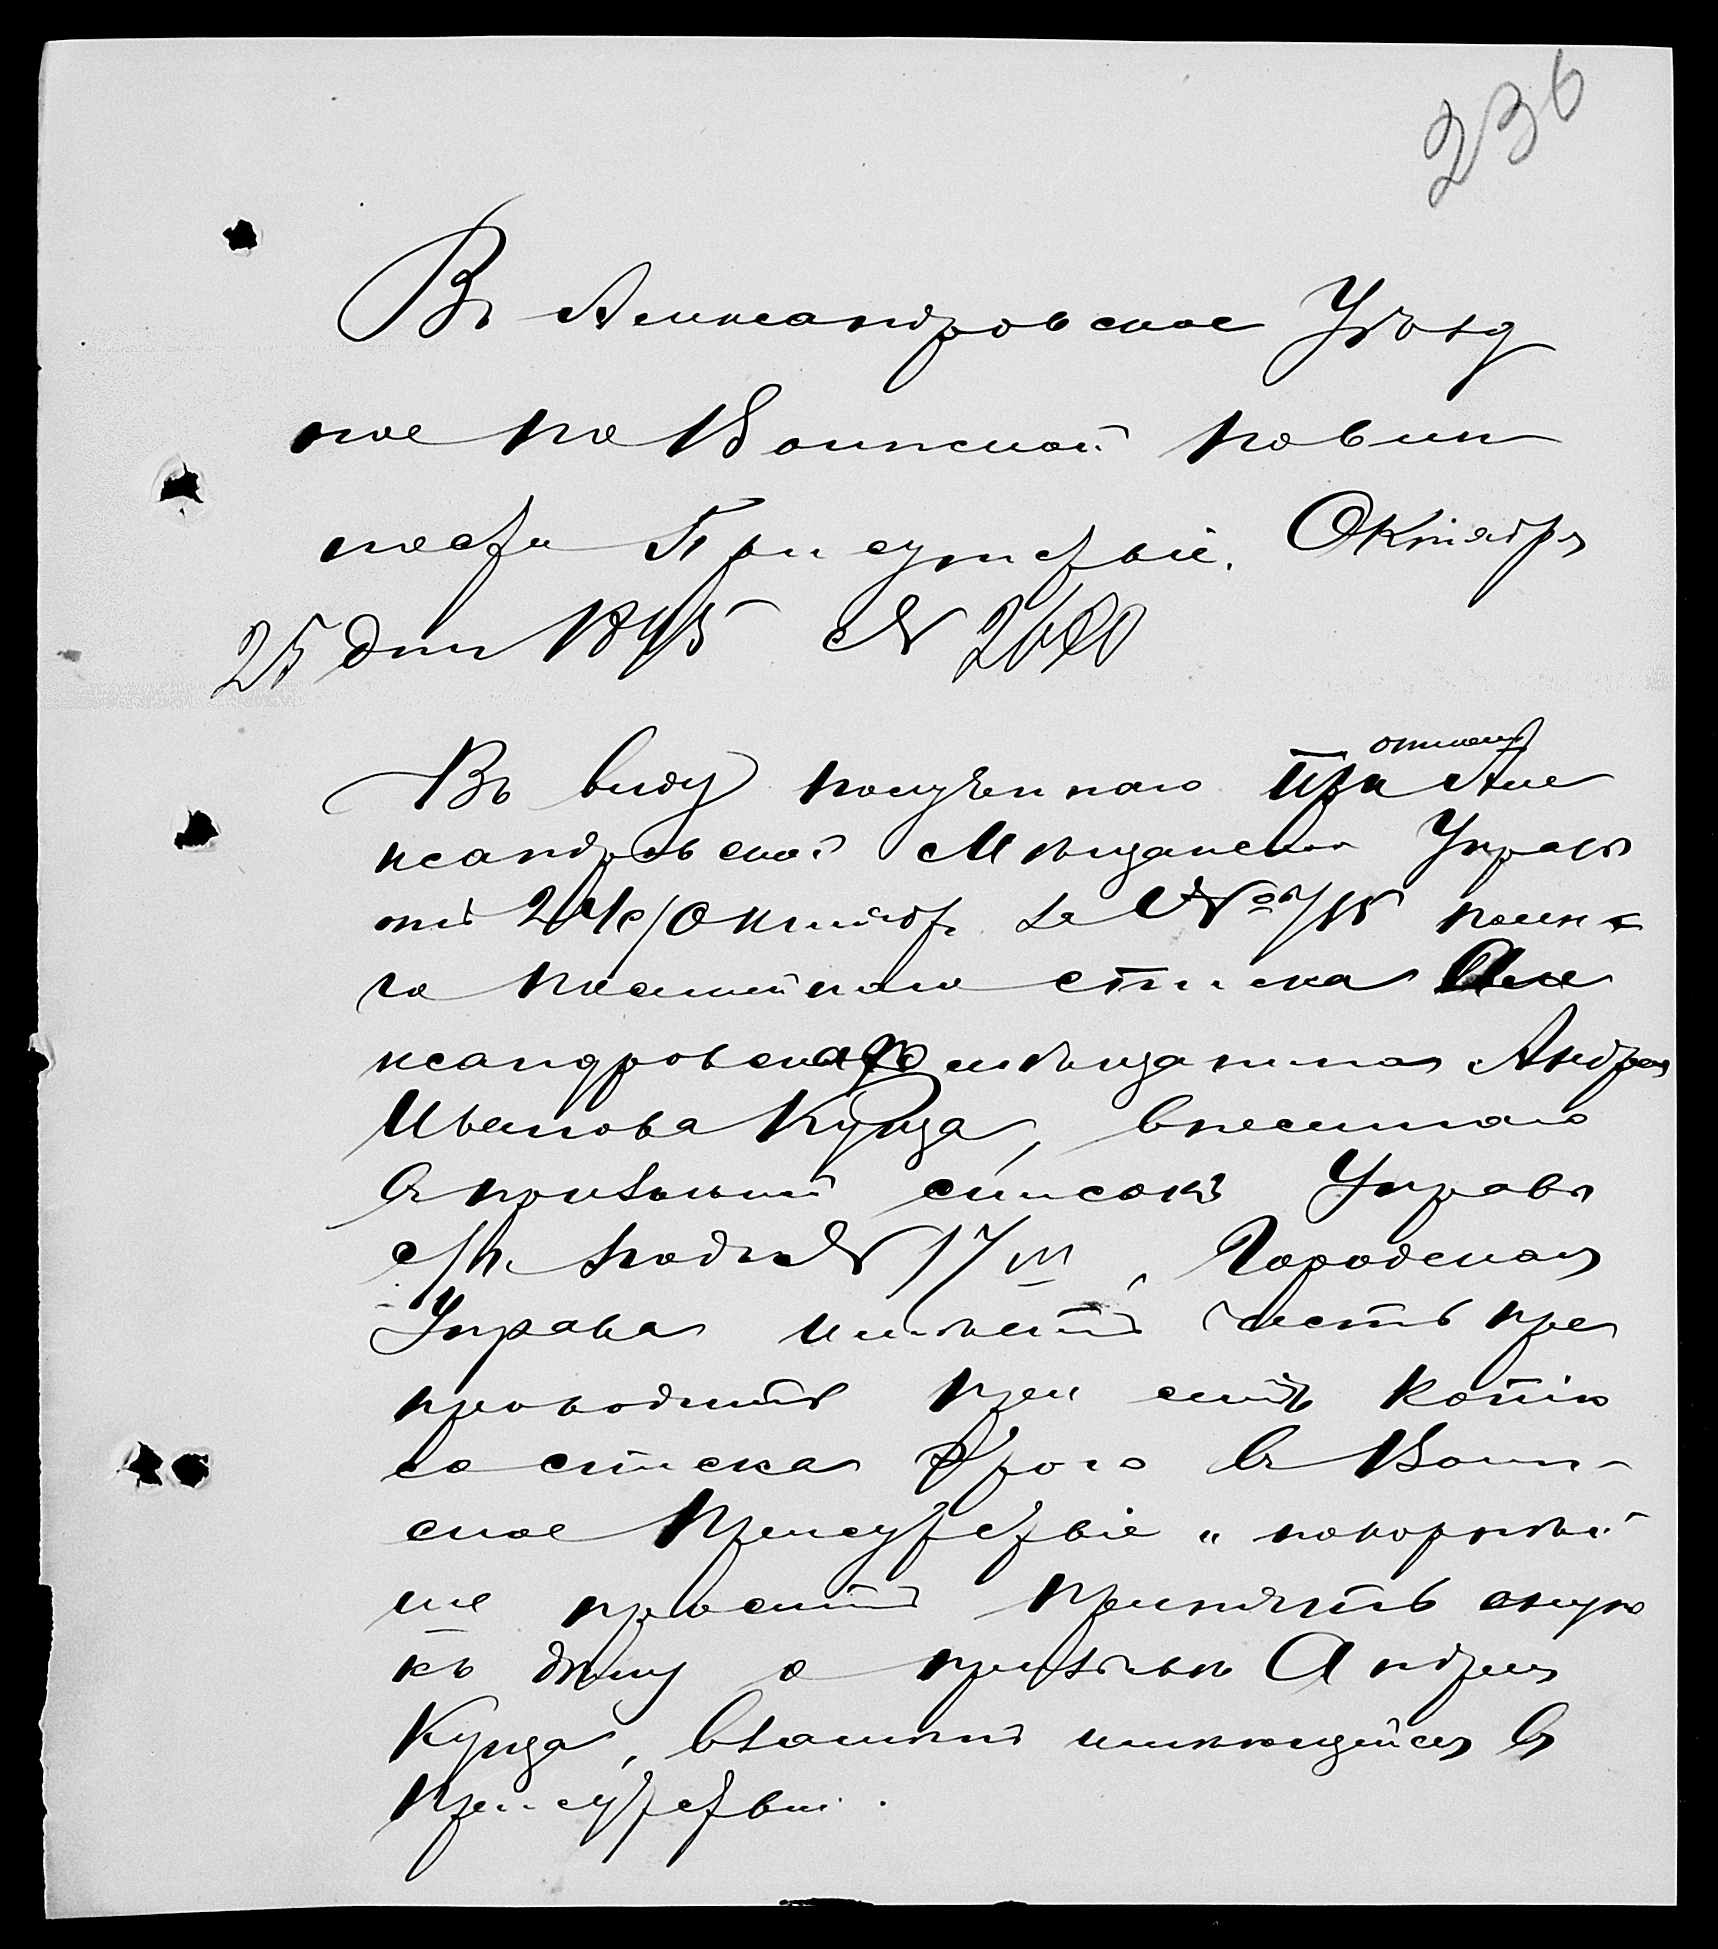 236
Въ Александровское Уѣзд
ное по Воинской повин
ности Присутствіе. Октября
25 дня 1895 № 2680
Въ виду полученнаго при Але
ксандровской Мѣщанской Управы
отъ 24 с/Октября за № 715 полна
го посемейнаго списка Але
ксандровскаго мѣщанина Андрея
Иванова Кунда, внесеннаго
въ призывный списокъ Управы
с/г. подъ № 17/III, Городская
Управа имѣетъ честь пре
проводить при семъ копію
со списка этого въ Воин-
ское Присутствіе и покорнѣй
ше проситъ принять оную
къ дѣлу о призывѣ Андрея
Кунда, взамѣнъ имѣющейся въ
Присутствіи.